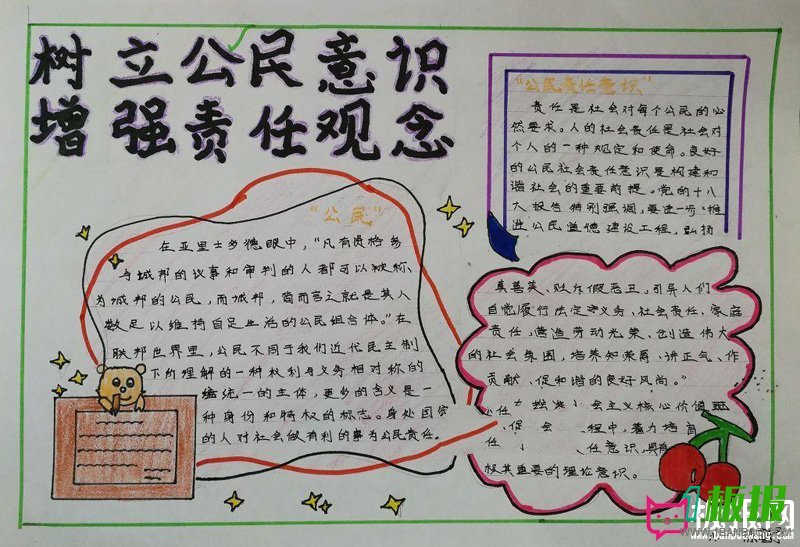 树立公民意识
增强责任观念
"公民"
在亚里士多德眼中，"凡有资格务
与城邦的议事和审判的人都可以被称
为城邦的公民，而城邦，简而言之就是其人
数足以维持自足生活的公民组合体。"在
联邦世界里，公民不同于我们近代民主制
下所理解的一种权利与义务相对称的
统一的主体，更多的含义是一
种身份和特权的标志。身处国家
的人对社会做有利的事为公民责任。
"公民责任意识"
责任是社会对每个公民的必
然要求。人的社会责任是社会对
个人的一种规定和使命。良好
的公民社会责任意识是构建和
谐社会的重要前提。党的十八
大报告特别强调，要进一步"推
进公民道德建设工程，弘扬
真善美、贬斥假恶丑，引导人们
自觉履行法定义务，社会责任、家庭
责任，营造劳动光荣、创造伟大
的社会氛围，培养知荣辱、讲正气、作
贡献、促和谐的良好风尚。"
会主义核心价值
促 会 程中，着力培育
任 任意识，具有
极其重要的理论意识。
板报网